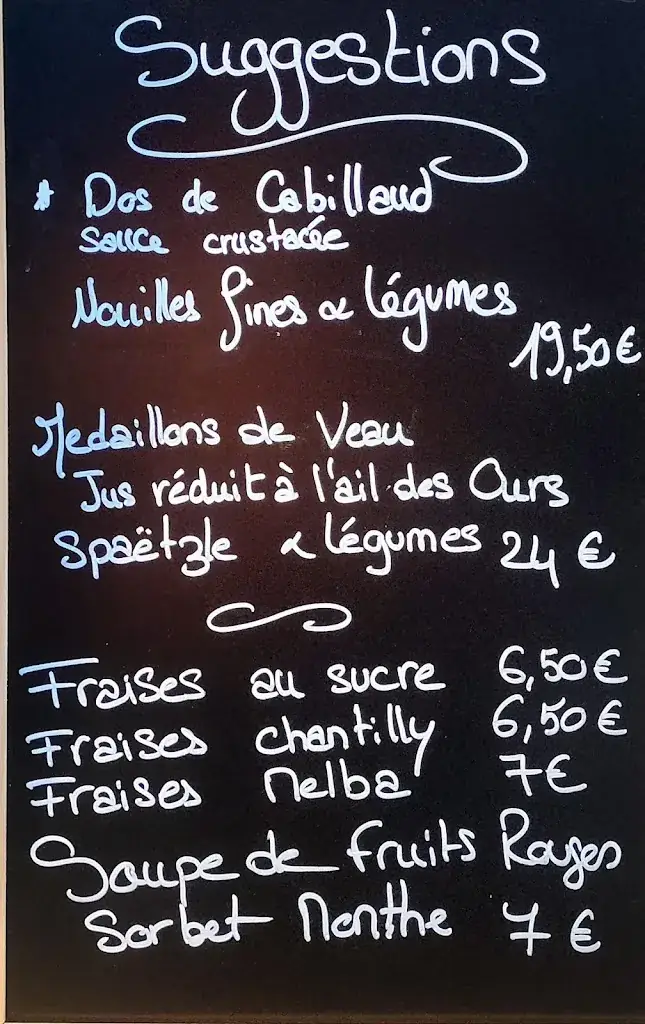 Suggestions
* Dos de Cabillaud
sauce crustacée
Nouilles fines & légumes
19,50 €
Medaillons de Veau
Jus réduit à l'ail des Ours
Spaëtzle & légumes 24 €
Fraises au sucre 6,50 €
Fraises chantilly 6,50 €
Fraises Melba 7 €
Soupe de fruits Rouges
Sorbet Menthe 7 €